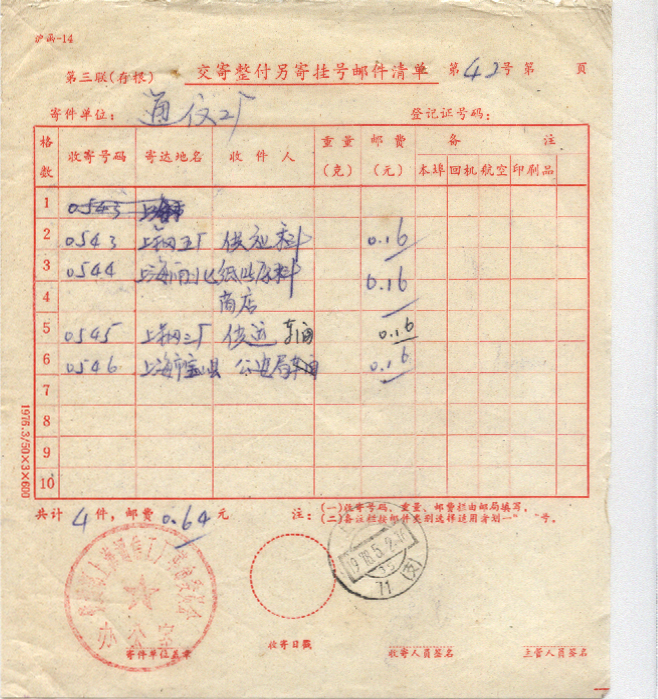 沪函-14
第三联(存根) 交寄整付另寄挂号邮件清单 第42号 第 頁
寄件单位: 通仪二厂 登记证号码:
格数 收寄号码 寄达地名 收件人 重量(克) 邮费(元) 备注
本埠 回机 航空 印刷品
1 0543
2 0543 上钢五厂 供应科 0.16
3 0544 上海 纸 原料 0.16
4 商店
5 0545 上钢三厂 供运 车间 0.16
6 0546 上海市宝山县 公安局 0.16
7
8
9
10
1976.3/50×3×600
共计 4 件,邮费 0.64 元 注:(一)收寄号码、重量、邮费栏由邮局填写。
(二)备註栏按邮件类别选择适用者划一" "号。
办公室
寄件单位盖章 收寄日戳 收寄人员签名 主管人员签名